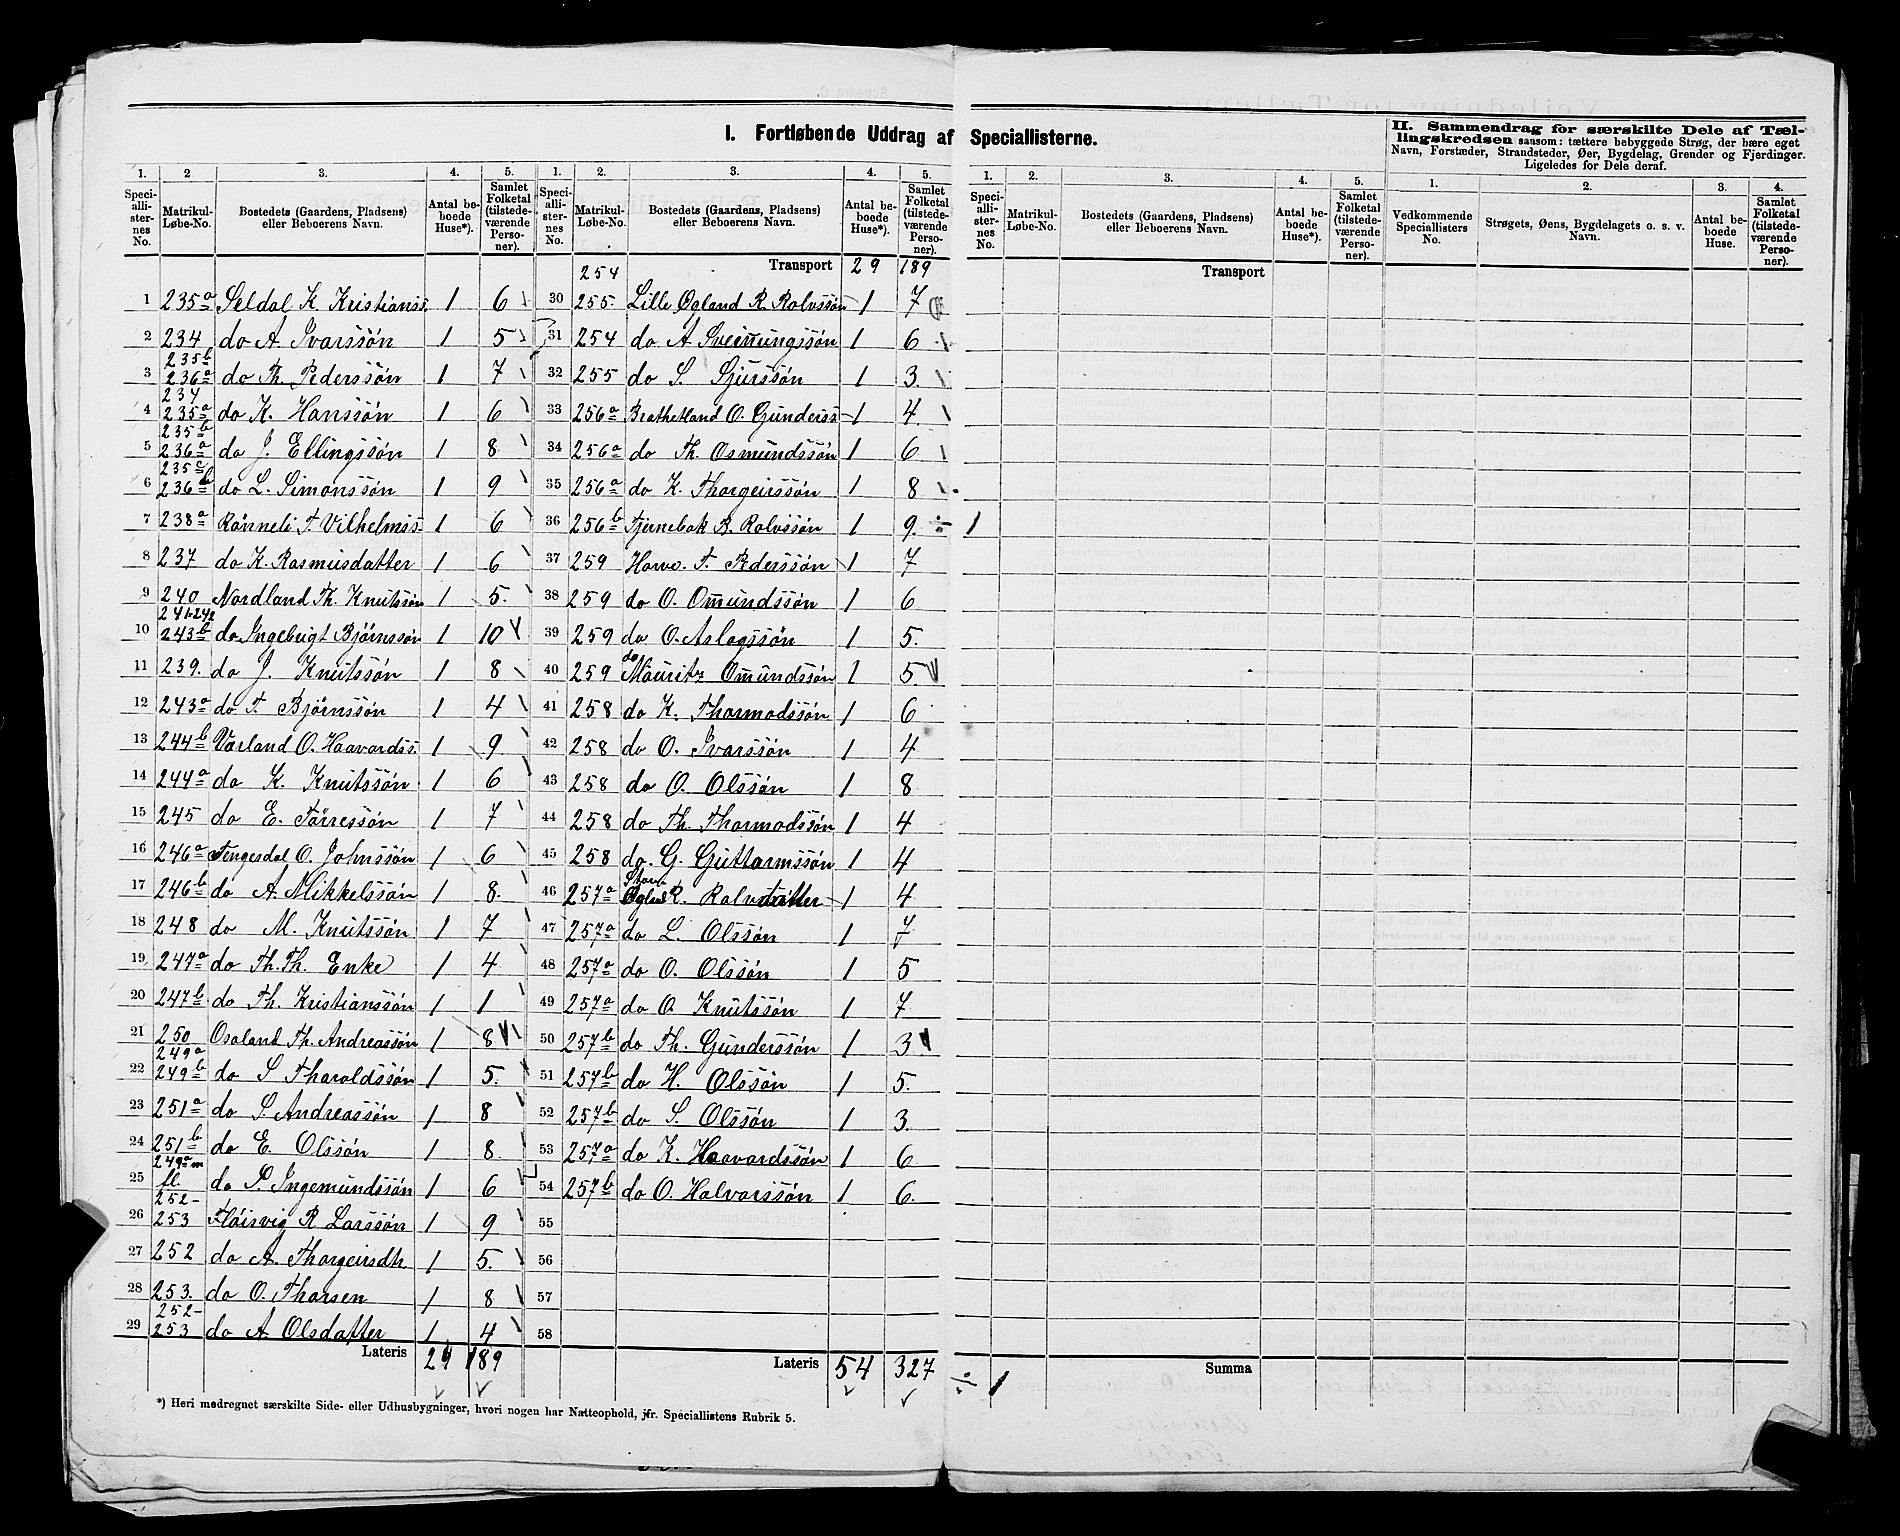 I. Fortløbende Uddrag af Speciallisterne.
II. Sammendrag for særskilte Dele af Tæl-
lingskredsen saasom: tættere bebyggede Strøg, der bære eget
Navn, Forstæder, Strandsteder, Øer, Bygdelag, Grender og Fjerdinger.
Ligeledes for Dele deraf.
1. 2 3. 4. 5. 1. 2. 3. 4. 5. 1. 2. 3. 4. 5. 1. 2. 3. 4.
Speciallisternes No. Matrikul-Løbe-No. Bostedets (Gaardens, Pladsens) eller Beboerens Navn. Antal beboede Huse*). Samlet Folketal (tilstedeværende Personer).
Speciallisternes No. Matrikul-Løbe-No. Bostedets (Gaardens, Pladsens) eller Beboerens Navn. Antal beboede Huse*). Samlet Folketal (tilstedeværende Personer).
Speciallisternes No. Matrikul-Løbe-No. Bostedets (Gaardens, Pladsens) eller Beboerens Navn. Antal beboede Huse*). Samlet Folketal (tilstedeværende Personer).
Vedkommende Speciallisters No. Strøgets, Øens, Bygdelagets o. s. v. Navn. Antal beboede Huse. Samlet Folketal (tilstedeværende Personer).
1 235a Seldal K Kristianss. 1 6
2 234 do A Ivarssön 1 5
3 235b 236a do Th. Pederssön 1 7
4 237 235a do K. Hanssön 1 6
5 235b 236a do J. Ellingssön 1 8
6 235c 236b do L. Simonssön 1 9
7 238a Rönneli T. Vilhelmss. 1 6
8 237 do K. Rasmusdatter 1 6
9 240 Nordland Th. Knutssön 1 5.
10 241-242 243b do Ingebrigt Bjørnssön 1 10
11 239. do J. Knutssön 1 8
12 243a do T. Bjørnssön 1 4
13 244b Varland O. Haavardss. 1 9
14 244a do K. Knutssön 1 6
15 245 do E. Törressön 1 7
16 246a Tengesdal O. Johnssön 1 6
17 246b do A. Mikkelssön 1 8.
18 248 do M. Knutssön 1 7
19 247a do Th. Th. Enke 1 4
20 247b do Th. Kristianssön 1 1
21 250 Osaland Th. Andreassön 1 8
22 249a 249b do S Tharoldssön 1 5.
23 251a do S Andreassön 1 8
24 251b do E. Olssön 1 8.
25 249a m fl. do P. Ingemundssön 1 6
26 252- 253 Flöisvig R. Larssön 1 9
27 252 do A. Thorgeirsdtr. 1 5.
28 253. do O. Thorsen 1 8
29 252- 253 do A Olsdatter 1 4
Lateris 29 189
Transport 29 189
30 254 255. Lille Ogland R. Rolvssön 1 7
31 254 do. A Sveinungssön 1 6
32 255 do S. Sjurssön 1 3.
33 256a Brathetland O. Gunderss 1 4.
34 256a do Th. Osmundssön 1 6
35 256a do K. Thorgeirssön 1 8
36 256b Tjernebak B. Rolvssön 1 9. ÷ 1
37 259 Harve. T. Pederssön 1 7
38 259 do O. Omundssön 1 6
39 259 do O. Aslagssön 1 5.
40 259 do Mauritz Omundssön 1 5.
41 258 do K. Thormodssön 1 6
42 258 do O. Ivarssön 1 4
43 258 do O. Olssön 1 8
44 258 do Th. Thormodssön 1 4
45 258 do. G. Guttormssön 1 4
46 257a Store Ogland R. Rolvsdatter 1 4
47 257a do L. Olssön 1 7
48 257a do O. Olssön 1 5
49 257a do O. Knutssön 1 7.
50 257b do Th. Gunderssön 1 3
51 257b do H. Olssön 1 5.
52 257b do S. Olssön 1 3.
53 257a do K. Haavardssön 1 6
54 257b do O. Halvorssön 1 6.
55
56
57
58
Lateris 54 327 ÷ 1
Transport
Summa
*) Heri medregnet særskilte Side- eller Udhusbygninger, hvori nogen har Natteophold, jfr. Speciallistens Rubrik 5.